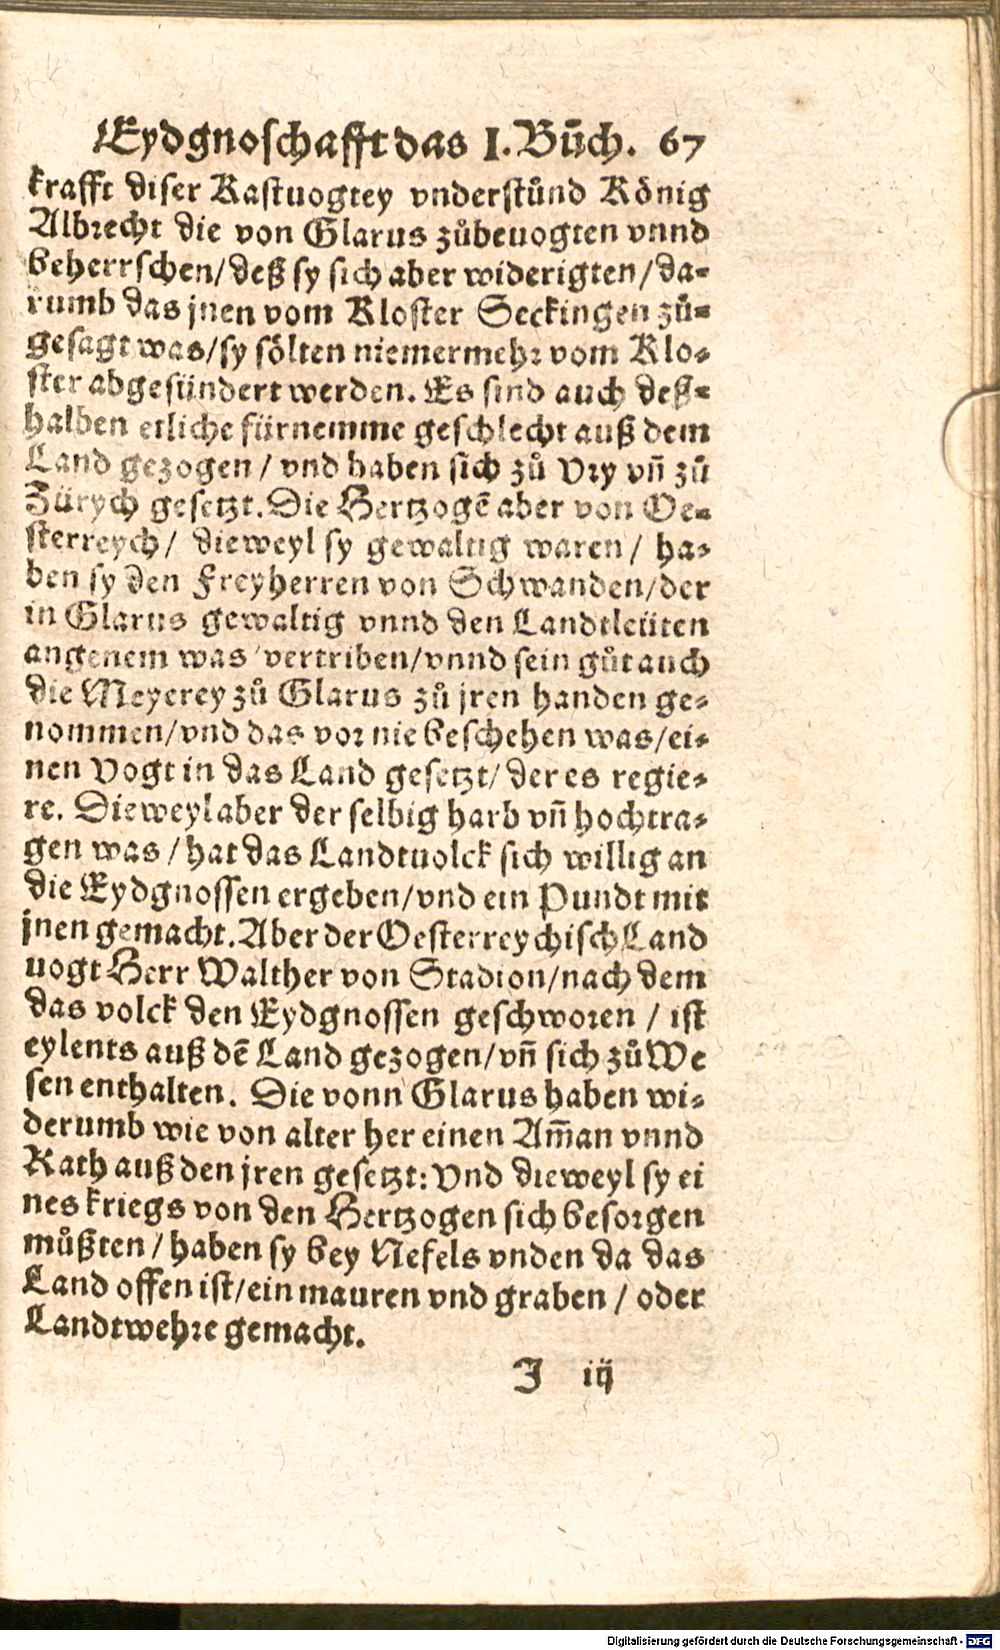 Eydgnoschafft das I. Bůch. 67
krafft diser Kastuogtey vnderstůnd König
Albrecht die von Glarus zůbeuogten vnnd
beherrschen/deß sy sich aber widerigten/da-
rumb das jnen vom Kloster Seckingen zů-
gesagt was/sy sölten niemermehr vom Klo-
ster abgesündert werden. Es sind auch deß-
halben etliche fürnemme geschlecht auß dem
Land gezogen/vnd haben sich zů Vry vñ zů
Zürych gesetzt. Die Hertzogẽ aber von Oe-
sterreych/ dieweyl sy gewaltig waren/ ha-
ben sy den Freyherren von Schwanden/der
in Glarus gewaltig vnnd den Landtleüten
angenem was/vertriben/vnnd sein gůt auch
die Meyerey zů Glarus zů jren handen ge-
nommen/vnd das vor nie beschehen was/ei-
nen Vogt in das Land gesetzt/der es regie-
re. Dieweyl aber der selbig harb vñ hochtra-
gen was/hat das Landtuolck sich willig an
die Eydgnossen ergeben/vnd ein Pundt mit
jnen gemacht. Aber der Oesterreychisch Land
uogt Herr Walther von Stadion/nach dem
das volck den Eydgnossen geschworen / ist
eylents auß dẽ Land gezogen/vñ sich zů We
sen enthalten. Die vonn Glarus haben wi-
derumb wie von alter her einen Am̃an vnnd
Rath auß den jren gesetzt: Vnd dieweyl sy ei
nes kriegs von den Hertzogen sich besorgen
můßten/haben sy bey Nefels vnden da das
Land offen ist/ein mauren vnd graben/ oder
Landtwehre gemacht.
I iij
Digitalisierung gefördert durch die Deutsche Forschungsgemeinschaft - DFG